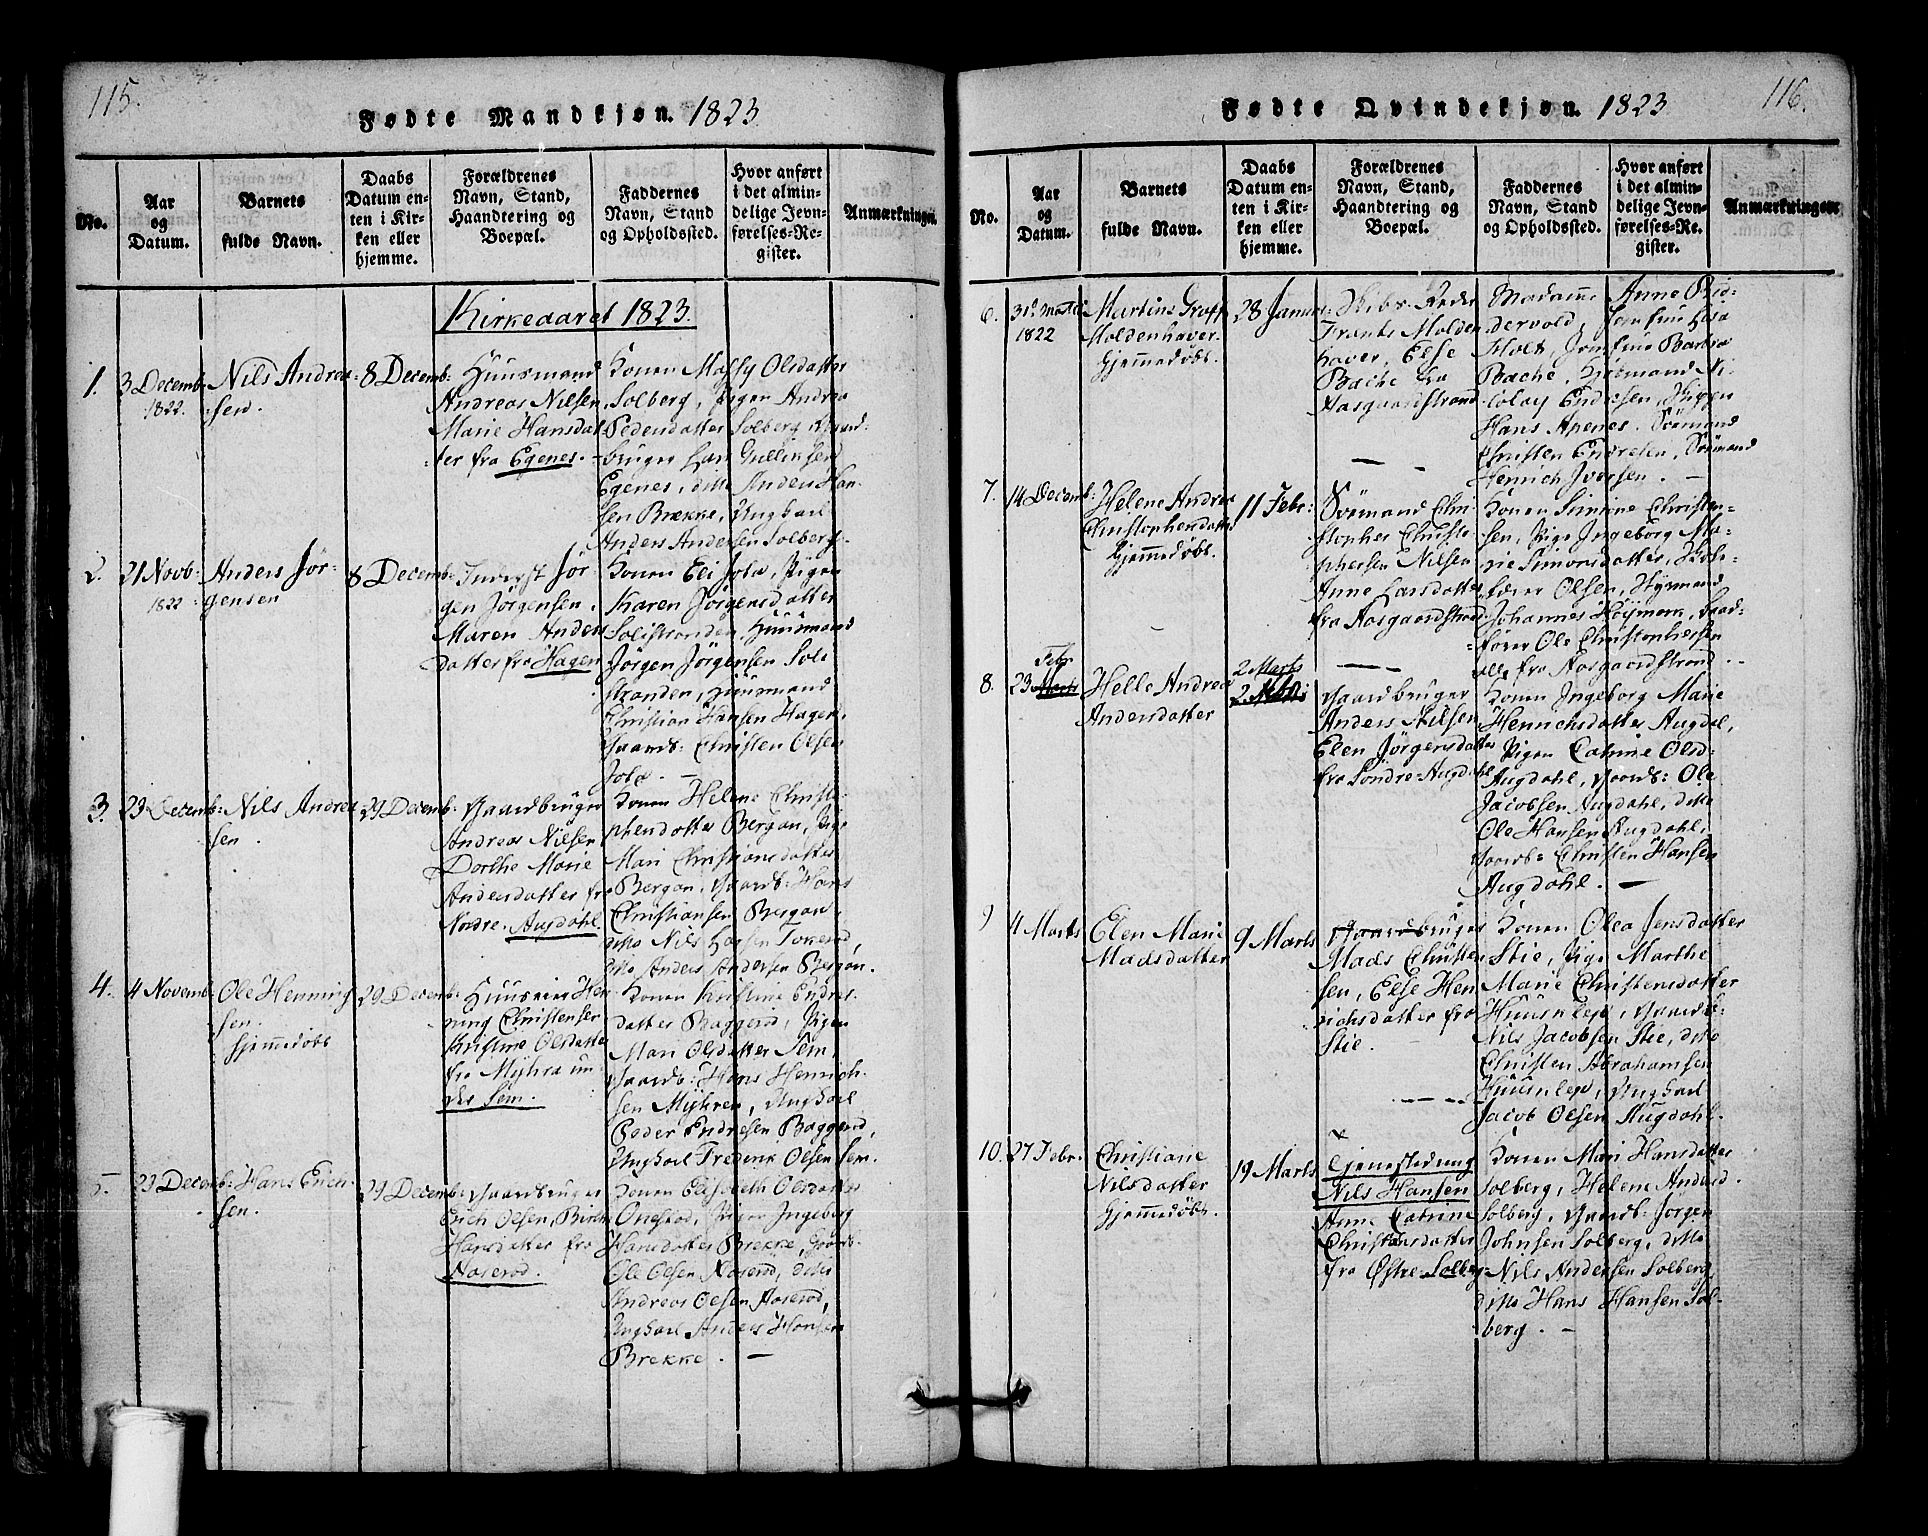 115.
Fødte Mandkjøn. 1823
No.
Aar
og
Datum.
Barnets
fulde Navn.
Daabs
Datum en-
ten i Kir-
ken eller
hjemme.
Forældrenes
Navn, Stand,
Haandtering og
Boepæl.
Faddernes
Navn, Stand
og Opholdssted.
Hvor anført
i det almin-
delige Jevn-
førelses-Re-
gister.
Anmærkninger.
Kirkeaaret 1823.
1.
3 Decemb:
1822.
Nils Andrea-
sen.
8 Decemb:
Huusmand
Andreas Nilsen,
Marie Hansdat-
ter fra Egenes.
Konen Massy Olsdatter
Solberg, Pigen Andrea
Pedersdatter Solberg, Gaard-
bruger Lars Gulliksen
Egenes, ditto Anders Han-
sen Brekke, Ungkarl
Anders Andersen Solberg.
2.
21 Novb:
1822
Anders Jör-
gensen
8 Decemb:
Inderst Jör
gen Jörgensen.
Maren Anders
datter fra Hagen
Konen Eli Jola, Pigen
Karen Jörgensdatter
Solistranden, Huusmand
Jörgen Jörgensen Soli
stranden, Huusmand
Christian Hansen Hagen,
Gaardb: Christen Olsen
Jola. —
3.
23 Decemb:
Nils Andrea
sen.
29 Decemb:
Gaardbruger
Andreas Nilsen
Dorthe Marie
Andersdatter fra
Nordre Augdahl
Konen Helene Christo-
phersdatter Bergan, Pige
Mari Christiansdatter
Bergan, Gaardb: Hans
Christiansen Bergan,
ditto Nils Larsen Tokerød,
ditto Anders Andersen Bergan.
4.
4 Novemb:
Ole Henning
sen.
Hjemmedøbt
29 Decemb:
Huusmand Hen
ning Christensen
Kristine Olsdatter
fra Myhra un
der Sem.
Konen Kristine Endres-
datter Baggerød, Pigen
Mari Olsdatter Sem,
Gaardb: Hans Henrich-
sen Myhren, Ungkarl
Peder Endresen Baggerød,
Ungkarl Frederik Olsen Sem.
5.
23 Decemb:
Hans Erich-
sen.
29 Decemb:
Gaardbruger
Erich Olsen, Birthe
Hansdatter fra
Aaserød.
Konen Elisabeth Olsdatter
Onestad, Pigen Ingeborg
Hansdatter Brekke, Gaardb.
Ole Olsen Aaserød, ditto
Andreas Olsen Aaserød,
Ungkarl Anders Hansen
Brekke. —
116.
Fødte Qvindekjøn. 1823
No.
Aar
og
Datum.
Barnets
fulde Navn.
Daabs
Datum en-
ten i Kir-
ken eller
hjemme.
Forældrenes
Navn, Stand,
Haandtering og
Boepæl.
Faddernes
Navn, Stand
og Opholdssted.
Hvor anført
i det almin-
delige Jevn-
førelses-Re-
gister.
Anmærkninger.
6.
1822
Martine Graff
Moldenhaver.
Hjemmedøbt.
28 Januar:
Frants Molden
haver, Else
Bache fra
Aasgaardstrand
Madame Anne Rid-
dervold, Jomfrue Lisa
Holt, Jomfrue Barbra
Bache, Kjöbmand Ni-
colay Endresen, Skipper
Hans Apenes. Sømand
Christen Endresen, Sømand
Henrich Iversen. —
7.
14 Decemb:
Helene Andrea
Christophersdatter
Hjemmedøbt.
11 Febr:
Sømand Chri-
stopher Christo-
phersen Nilsen
Anne Larsdatter
fra Aasgaardstrand
Konen Simine Christen-
sen, Pige Ingeborg Ma-
rie Simonsdatter, Skole-
lærer Olsen, Styrmand
Johannes Höymork, Baad-
fører Ole Christophersen
alle fra Aasgaardstrand.
8.
Febr
23 Marts
Helle Andrea
Andersdatter
2 Marts
Gaardbruger
Anders Nilsen
Elen Jörgensdatter
fra Söndre Augdahl
Konen Ingeborg Marie
Henrichsdatter Augdal,
Pigen Catrine Olsd:
Augdahl, Gaardb: Ole
Jacobsen Augdahl, ditto
Ole Hansen Augdahl,
Gaardb: Christen Hansen
Augdahl. —
9
4 Marts
Elen Marie
Madsdatter
9 Marts
Gaardbruger
Mads Christen
sen, Else Hen
richsdatter fra
Stie.
Konen Olea Jensdatter
Stie, Pige Marthe
Marie Christensdatter
Huusnleje, Gaardb:
Nils Jacobsen Stie, ditto
Christen Abrahamsen
Huusnleje, Ungkarl
Jacob Olsen Augdahl.
10.
27 Febr.
Christiane
Nilsdatter
Hjemmedøbt.
19 Marts
Tjenestedreng
Nils Hansen
Anne Catrine
Christiansdatter
fra Østre Solberg
Konen Mari Hansdatter
Solberg, Helene Andersd.
Solberg, Gaardb: Jörgen
Johnsen Solberg, ditto
Nils Andersen Solberg,
ditto Hans Hansen Sol-
berg. —